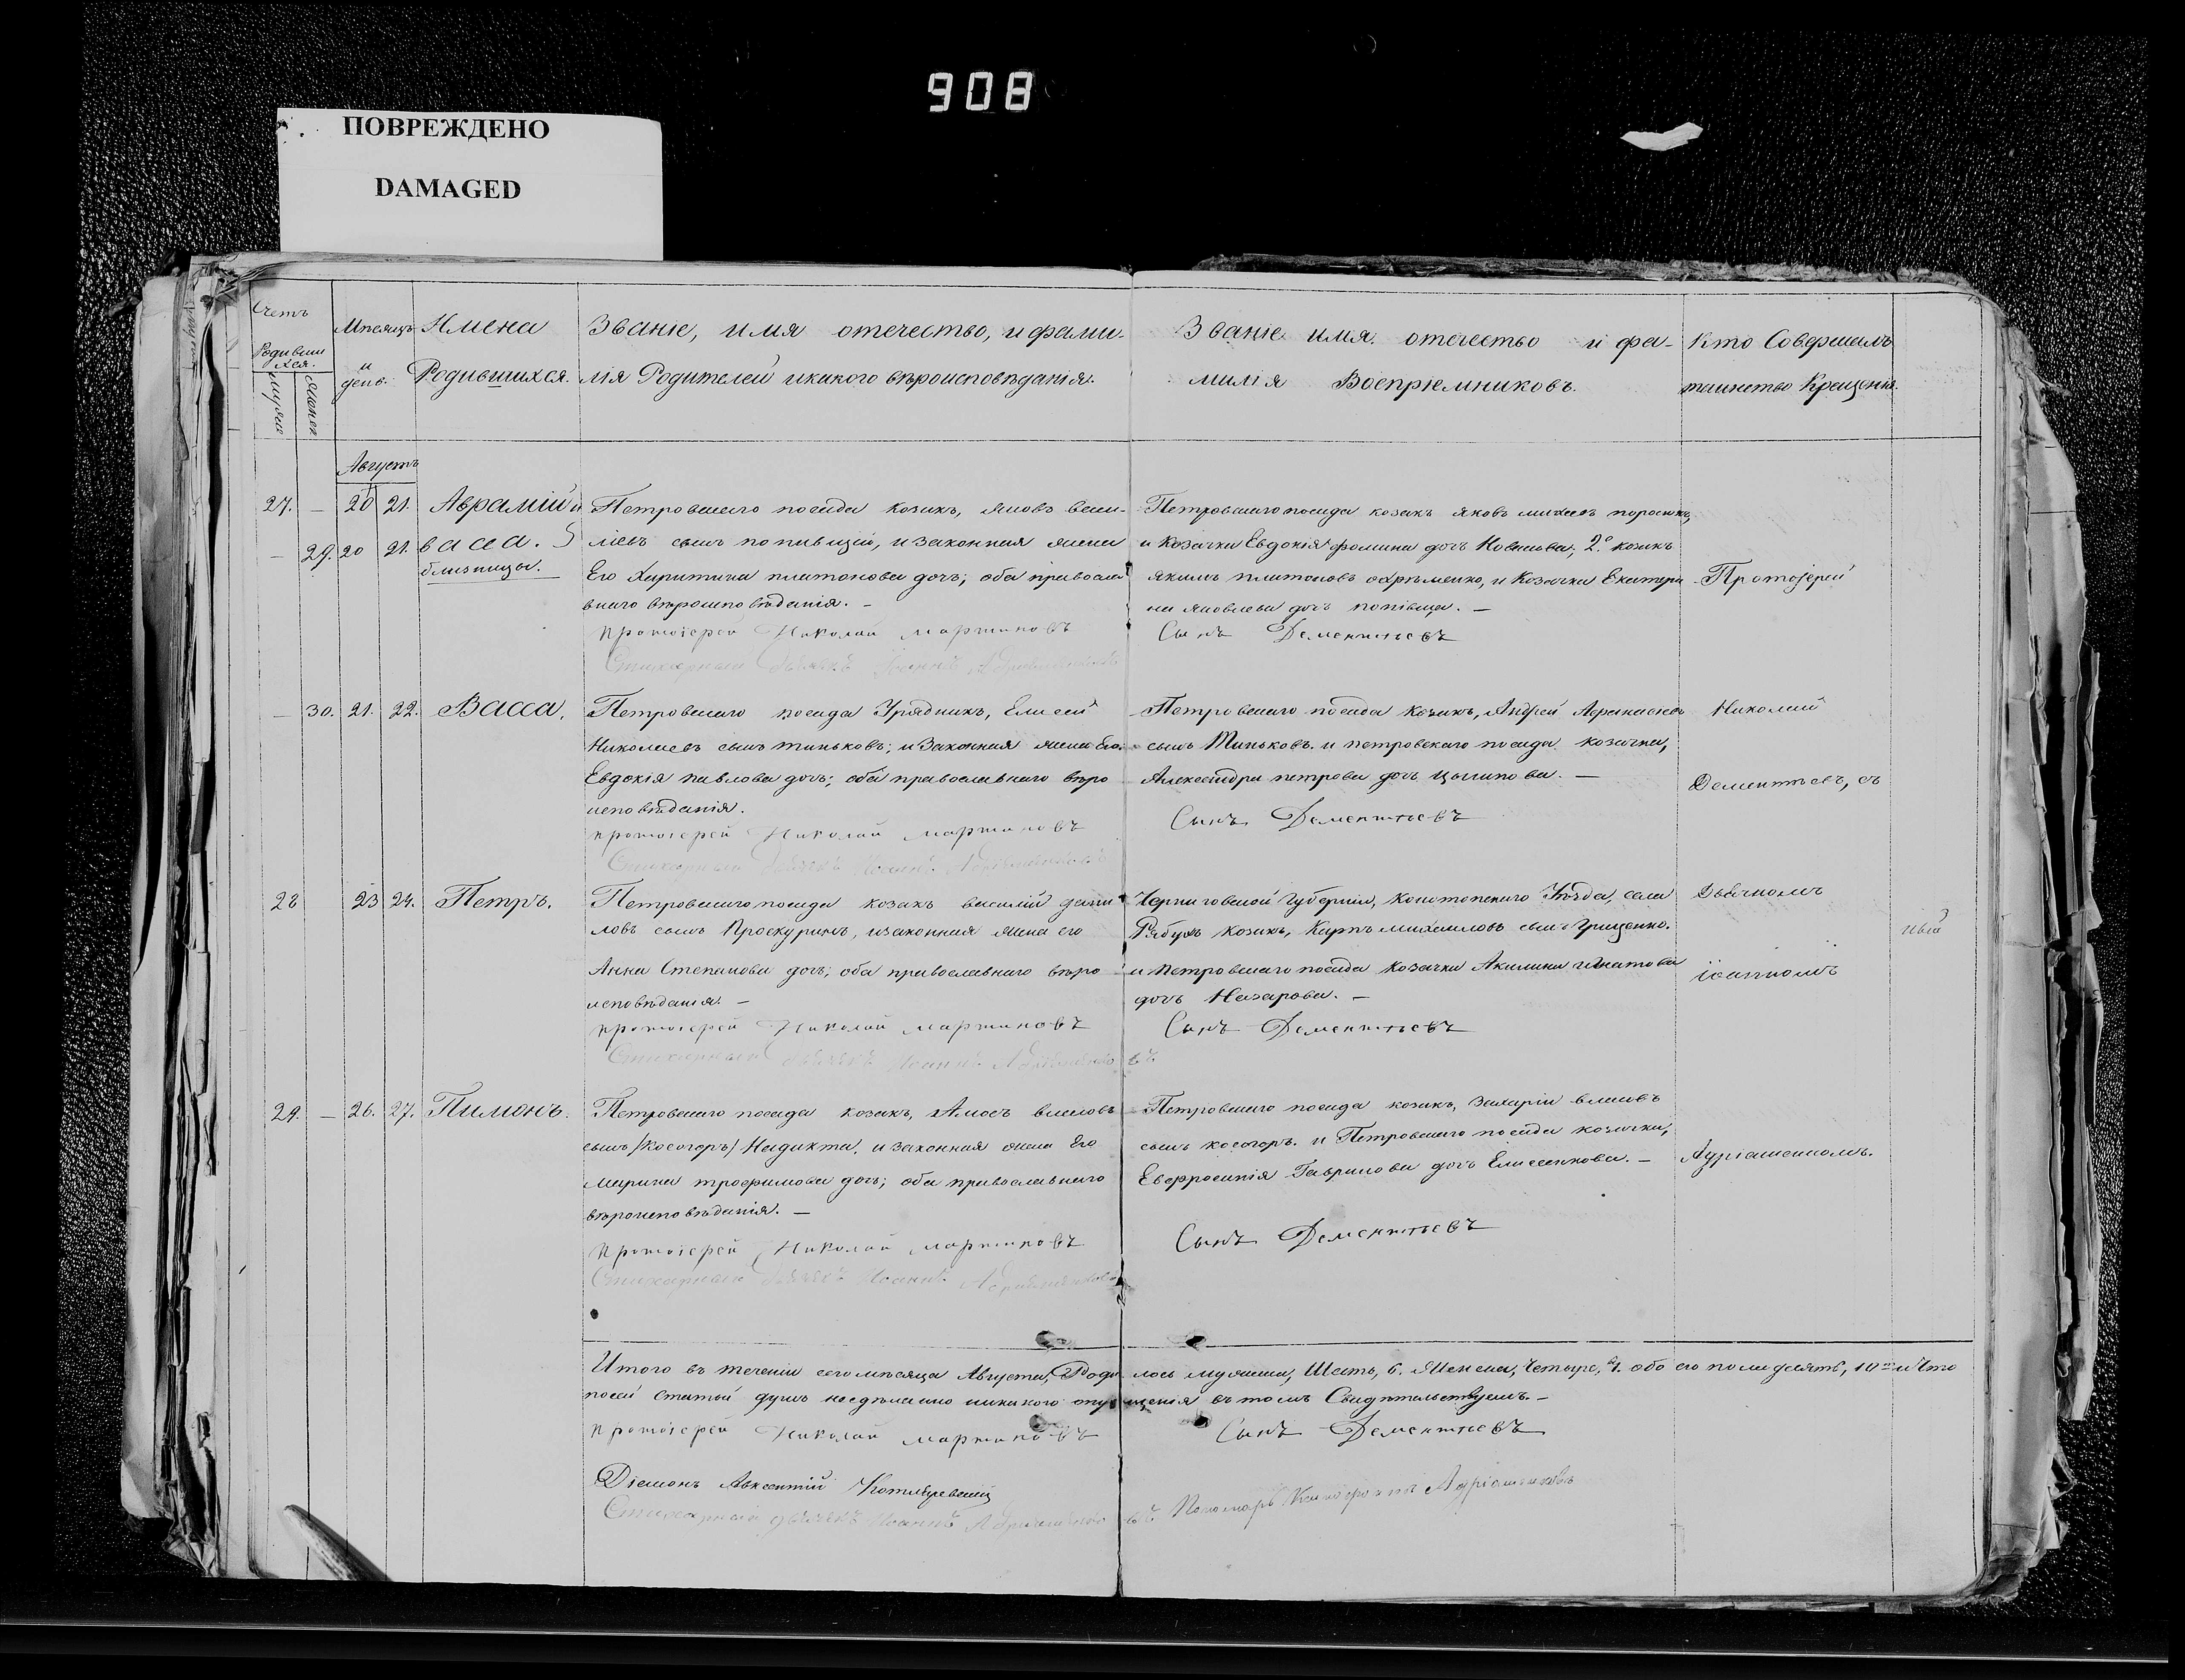 908
ПОВРЕЖДЕНО
DAMAGED
Счетъ
Родивши
хся.
Мѣсяцъ
и
день.
Имена
Родившихся.
Званіе, имя отечество, и фами-
лія Родителей и какого вѣроисповѣданія.
Званіе имя отечество и фа-
милія Воспріемниковъ.
Кто Совершалъ
таинство Крещенія.
Августъ
27. — 20 21. Аврамій и
— 29. 20 21. васса.
близницы.
Петровскаго посада козакъ, Яковъ васи-
ліевъ сынъ попивщій, и законная жена
Его Харитина платонова дочь; оба правосла
внаго вѣроисповѣданія. —
протоіерей Николай мартиновъ
Стихарный Дьячекъ Іоаннъ
Петровскаго посада козакъ яковъ
и Козачка Евдокія фомина дочь 2.е козакъ
якимъ платоновъ охрѣменко, и Козачка Екатери
на яковлева дочь попівща. —
Сынъ Дементьевъ
Протоіерей
— 30. 21. 22. Васса.
Петровскаго посада Урядникъ, Елисей
Николаевъ сынъ тиньковъ; и Законная жена Его
Евдокія павлова дочь; оба православнаго вѣро
исповѣданія.
протоіерей Николай мартиновъ
Стихарный Дьячекъ Іоаннъ
Петровскаго посада козакъ, Андрей
сынъ Тиньковъ. и петровскаго посада козачка,
Александра петрова дочь цыпинова. —
Сынъ Дементьевъ
Николай
Дементьевъ, съ
28 23 24. Петръ.
Петровскаго посада козакъ василій дани
ловъ сынъ Проскуринъ, и законная жена его
Анна Степанова дочь; оба православнаго вѣро
исповѣданія. —
протоіерей Николай мартиновъ
Стихарный Дьячекъ Іоаннъ
Черниговской Губерніи, Конотопскаго Уѣзда, села
козакъ, Карпъ михайловъ сынъ Грищенко.
и петровскаго посада козачка Акилина игнатова
дочь Назарова. —
Сынъ Дементьевъ
Дьячкомъ
іоанномъ
29. — 26. 27. Пимонъ.
Петровскаго посада козакъ, Амосъ власовъ
сынъ /Косогоръ/ Надикта, и законная жена Его
Марина трофимова дочь; оба православнаго
вѣроисповѣданія. —
протоіерей Николай мартиновъ
Стихарный Дьячекъ Іоаннъ
Петровскаго посада козакъ, Захарій власовъ
сынъ косогоръ. и Петровскаго посада козачка,
Евфросинія Гаврилова дочь Елисеенкова. —
Сынъ Дементьевъ
Адріашенкомъ.
Итого въ теченіи сего мѣсяца Августа, Роди лось мужеска, Шесть, 6. Женска, Четыре, 4. обо его пола десять, 10 и Что
посей статьѣ душъ несдѣлано никакого опущенія въ томъ Свидѣтельствуемъ. —
протоіерей Николай мартиновъ
Сынъ Дементьевъ
Діаконъ Авксентій Котляревскій
Стихарный дьячекъ Іоаннъ
Пономарь Адріашенковъ